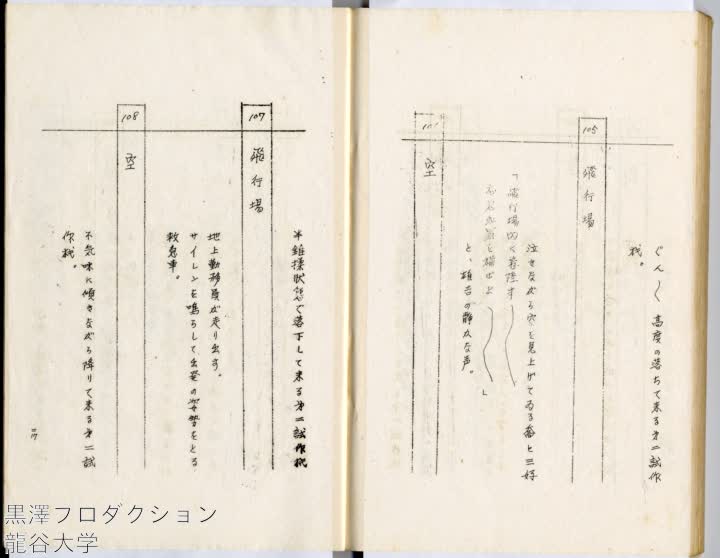 ぐん〳〵高度の落ちて来る第二試作
機。
105
飛行場
泣きながら空を見上げてゐる番と三好
「飛行場の
と、
の静かな声。
空
107
飛行場
半錐揉状態で落下して来る第二試作機
地上勤務員が走り出す。
サイレンを鳴らして出発の姿勢をとる
救急車。
108
空
不気味に傾きながら降りて来る第二試
作機。
二七
黒澤プロダクション
龍谷大学